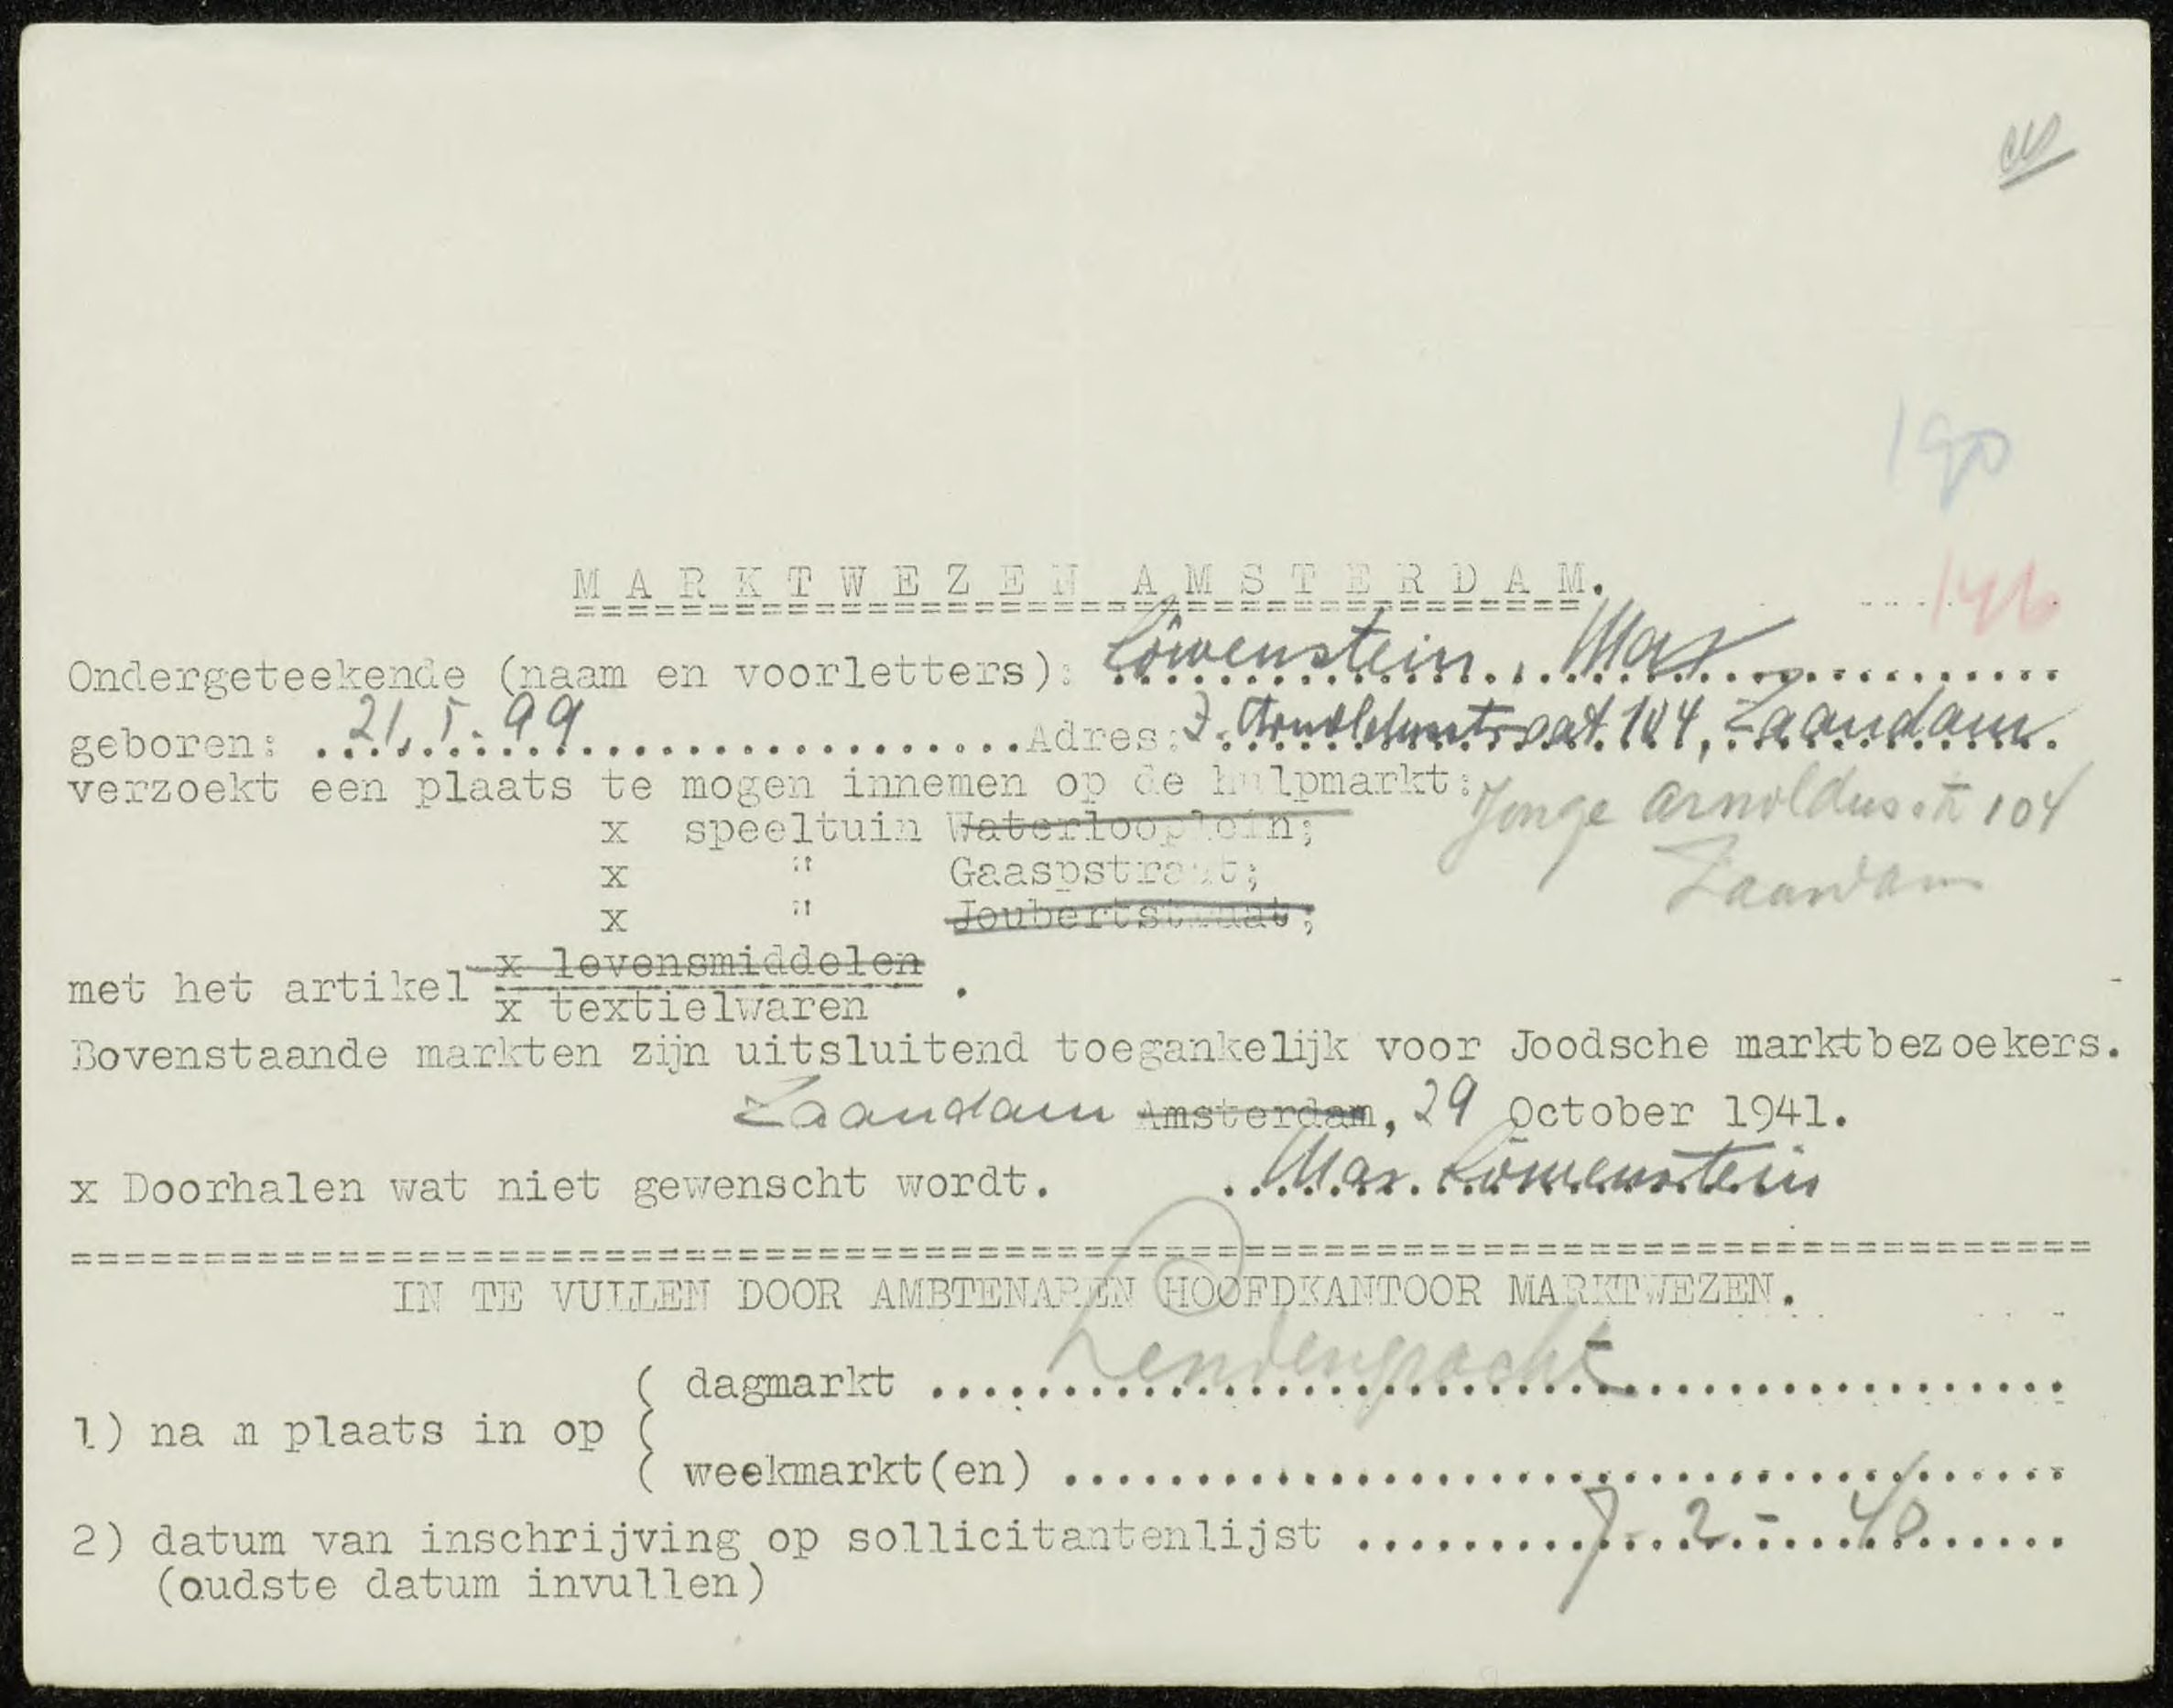 190
146
MARKTWEZEN AMSTERDAM.
Ondergeteekende (naam en voorletters): Löwenstein, Max
geboren: 21.5.99 Adres: J. Arnoldusstraat 104, Zaandam.
verzoekt een plaats te mogen innemen op de hulpmarkt:
Jonge Arnoldusstr 104
Zaandam
x speeltuin Waterlooplein;
x " Gaaspstraat;
x " Joubertstraat;
met het artikel x levensmiddelen
x textielwaren .
Bovenstaande markten zijn uitsluitend toegankelijk voor Joodsche marktbezoekers.
Zaandam Amsterdam, 29 October 1941.
x Doorhalen wat niet gewenscht wordt. Max Löwenstein
IN TE VULLEN DOOR AMBTENAREN HOOFDKANTOOR MARKTWEZEN.
1) nam plaats in op ( dagmarkt
( weekmarkt(en)
2) datum van inschrijving op sollicitantenlijst 7-2-40
(oudste datum invullen)